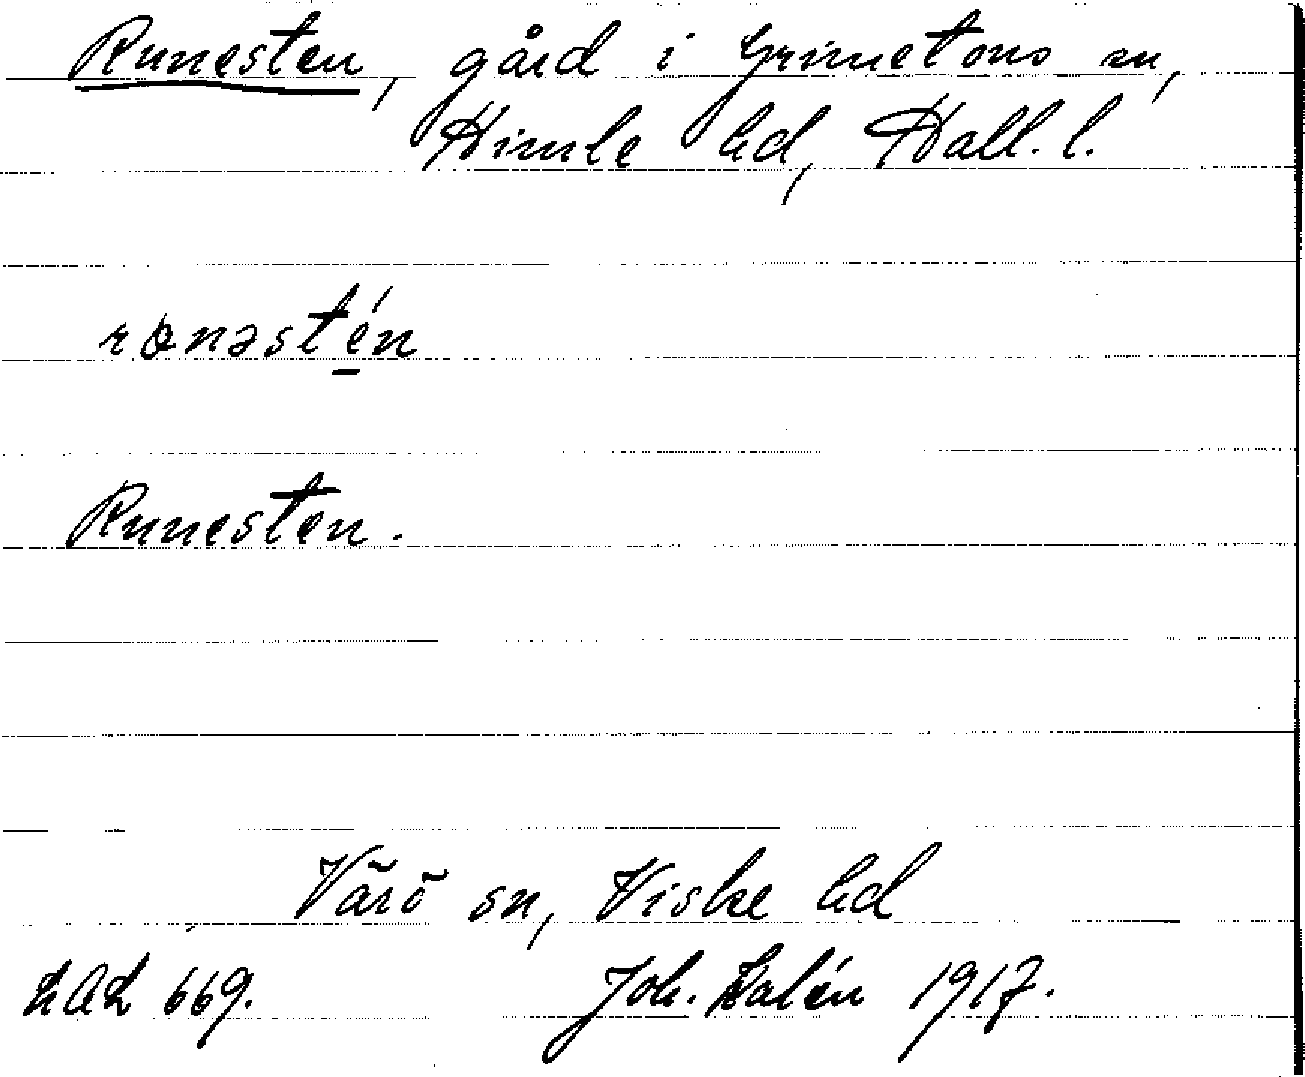 Runesten, gård i Grimetons sn,
Himle hd, Hall. l.
rɵnəstén
Runesten.
Värö sn, Viske hd
LAL 669. Joh. Kalén 1917.